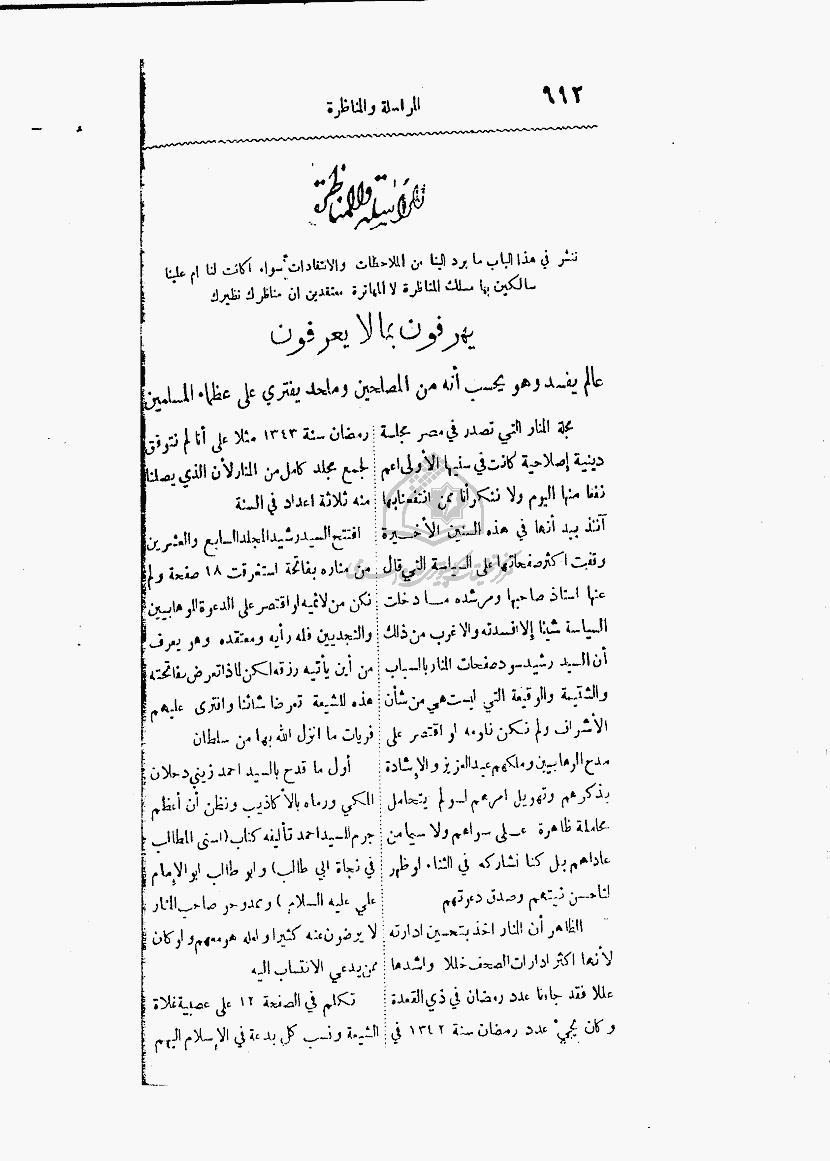 ٩١٢
المراسلة والمناظرة
المراسلة والمناظرة
ننشر في هذا الباب ما يرد الينا من الملاحظات والانتقادات سواء أكانت لنا ام علينا
سالكين بها مسلك المناظرة لا المهاترة معتقدين ان مناظرك نظيرك
يهرفون بما لا يعرفون
عالم يفسد وهو يحسب أنه من المصلحين وملحد يفتري على عظماء المسلمين
مجلة المنار التي تصدر في مصر مجلسة
دينية إصلاحية كانت في سنيها الأولى اعم
نفعا منها اليوم ولا ننكر أنا ممن انتفعنا بها
آنئذ بيد أنها في هذه السنين الأخيرة
وقفت اكثر صفحاتها على السياسة التي قال
عنها استاذ صاحبها ومرشده ما دخلت
السياسة شيئا إلا افسدته والاغرب من ذلك
أن السيد رشيد سود صفحات المنار بالسباب
والشتيمة والوقيعة التي ليست هي من شأن
الأشراف ولم نكن نلومه لو اقتصر على
مدح الوهابيين وملكهم عبد العزيز والإشادة
بذكرهم وتهويل امرهم لو لم يتحامل
محاملة ظاهرة على سواهم ولا سيما من
عاداهم بل كنا نشاركه في الثناء لو ظهر
لنا حسن نيتهم وصدق دعوتهم
الظاهر أن المنار اخذ بتحسين ادارته
لأنها اكثر ادارات الصحف خللا واشدها
عللا فقد جاءنا عدد رمضان في ذي القعدة
وكان يجيء عدد رمضان سنة ١٣٤٢ في
رمضان سنة ١٣٤٣ مثلا على أنا لم نتوفق
لجمع مجلد كامل من المنار لأن الذي يصلنا
منه ثلاثة اعداد في السنة
افتتح السيد رشيد المجلد السابع والعشرين
من مناره بفاتحة استغرقت ١٨ صفحة ولم
نكن من لائميه لو اقتصر على الدعوة للوهابيين
والنجديين فله رأيه ومعتقده وهو يعرف
من أين يأتيه رزقه لكن لماذا تعرض بفاتحته
هذه للشيعة تعرضا شائنا وافترى عليهم
فريات ما انزل الله بها من سلطان
أول ما قدح بالسيد احمد زيني دحلان
المكي ورماه بالأكاذيب ونظن أن أعظم
جرم للسيد احمد تأليفه كتاب (اسنى المطالب
في نجاة ابي طالب) وابو طالب ابو الإمام
علي عليه السلام) وممدوحو صاحب المنار
لا يرضون عنه كثيرا ولعله هو معهم ولو كان
ممن يدعي الانتساب اليه
تكلم في الصفحة ١٢ على عصبية غلاة
الشيعة ونسب كل بدعة في الإسلام اليهم